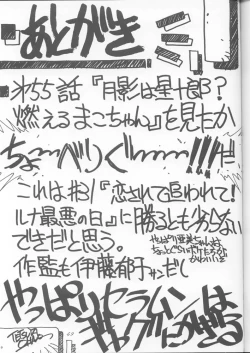 あとがき
㐧55話『月影は星十郎?
燃えるまこちゃん』を見たか
ちょ〜べりぐ〜〜〜!!!だ
これは#31『恋されて追われて!
ルナ最悪の日』に勝るとも劣らない
できだと思う。
作監も伊藤郁子サンだし
やっぱりセーラームーンは
ギャグにかぎる